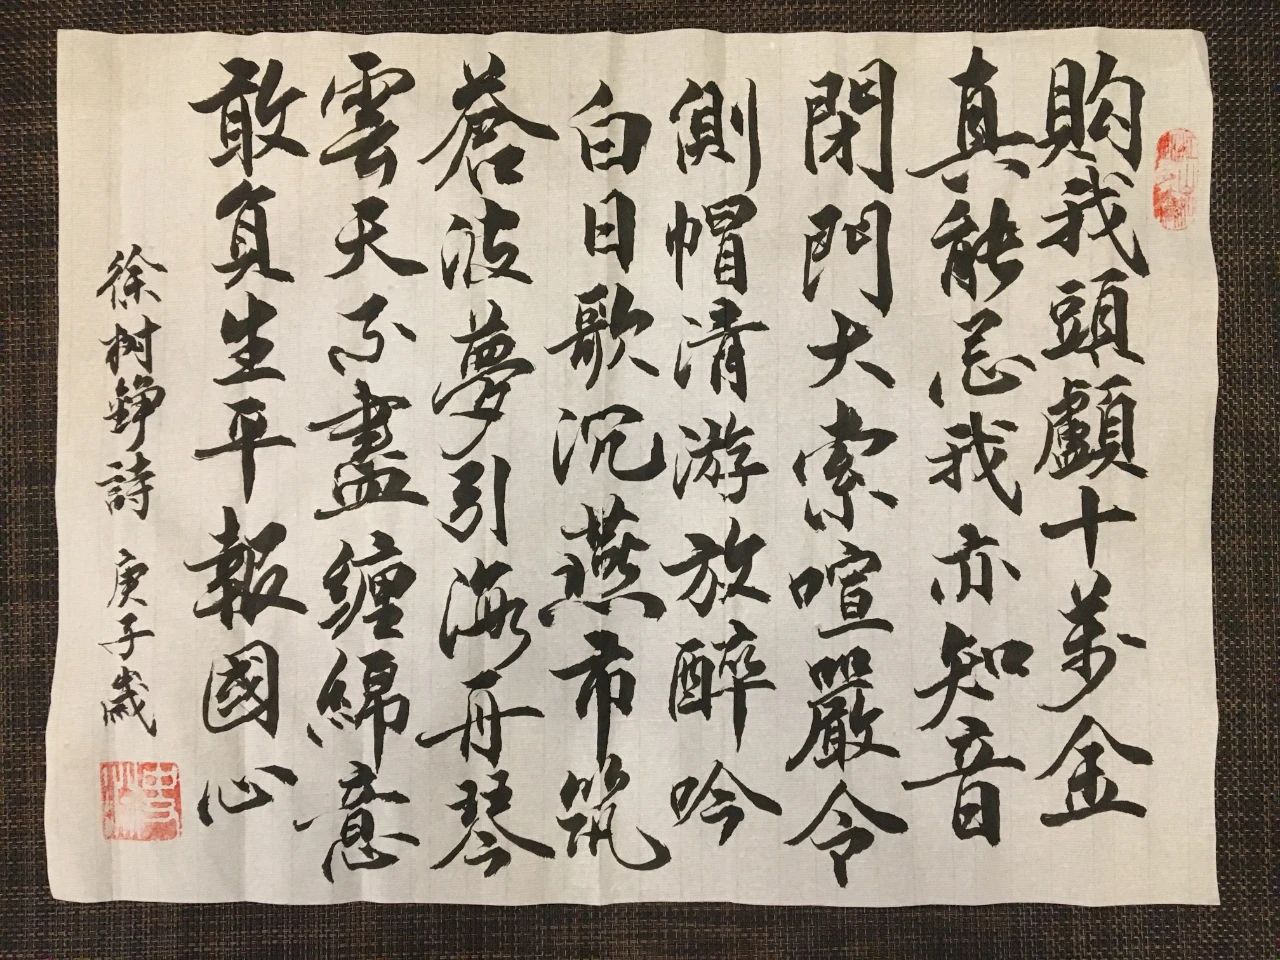 購我頭顱十萬金
真能忌我亦知音
閉門大索喧嚴令
側帽清游放醉吟
白日歌沉燕市筑
蒼波夢引海舟琴
雲天不盡纏綿意
敢負生平報國心
徐树錚詩 庚子歲